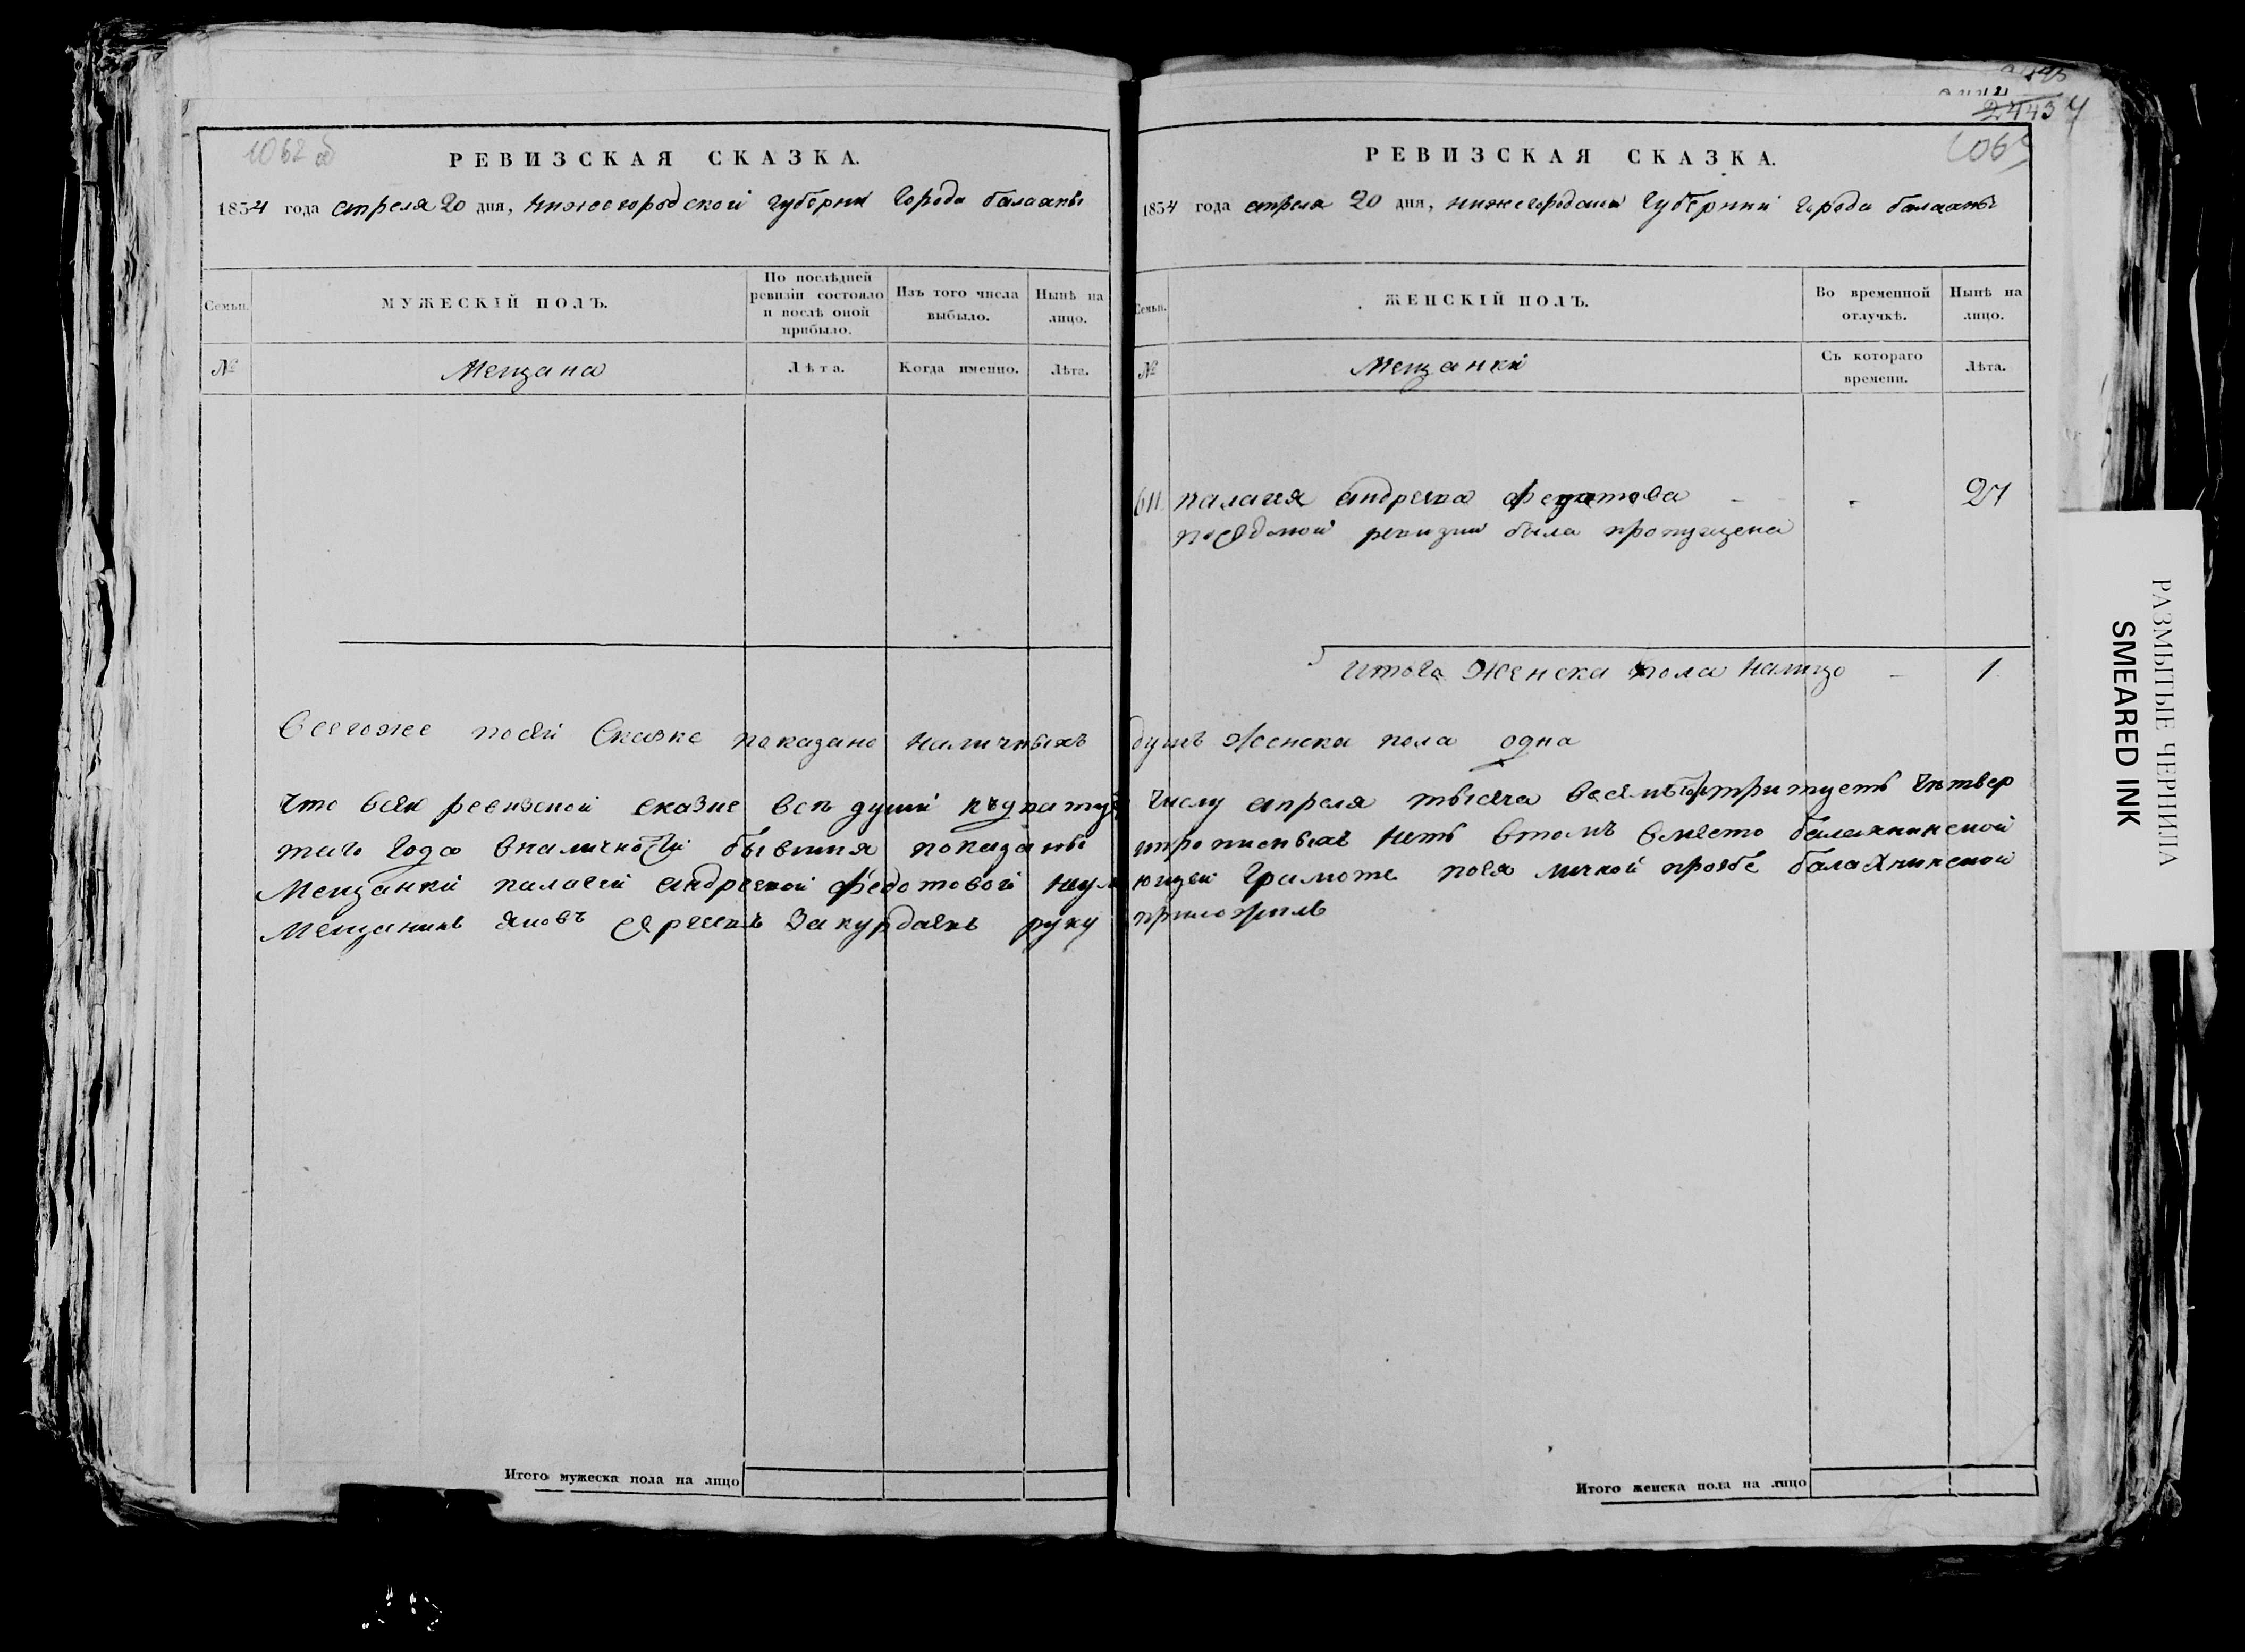 1062 об
РЕВИЗСКАЯ СКАЗКА.
1854 года апреля 20 дня, Нижегородской губернии Города балахны
Семьи.
МУЖЕСКІЙ ПОЛЪ.
По послѣдней ревизіи состояло и послѣ оной прибыло.
Изъ того числа выбыло.
Нынѣ на лицо.
№
Мещана
Лѣта.
Когда именно.
Лѣта.
Итого мужеска пола на лицо
2443
1063
РЕВИЗСКАЯ СКАЗКА.
1854 года апреля 20 дня, нижегородской Губернии города балахны
Семьи.
ЖЕНСКІЙ ПОЛЪ.
Во временной отлучкѣ.
Нынѣ на лицо.
№
Мещанки
Съ котораго времени.
Лѣта.
611 палагея андреева федотова - - 27
ревизии была пропущена
итого Женска пола налицо - 1
Всегоже посей Сказке показано наличныхъ душъ Женска пола одна
что всей ревизской сказке все души числу апреля тысяча четвер
таго года вналичности бывшия показаны и прописныхъ нетъ втомъ вместо балахнинской
Мещанки палагеи андреевой федотовой неумеющей Грамоте поея личной прозбе балахнинской
Мещанинъ яковъ руку приложилъ
Итого женска пола на лицо
РАЗМЫТЫЕ ЧЕРНИЛА
SMEARED INK